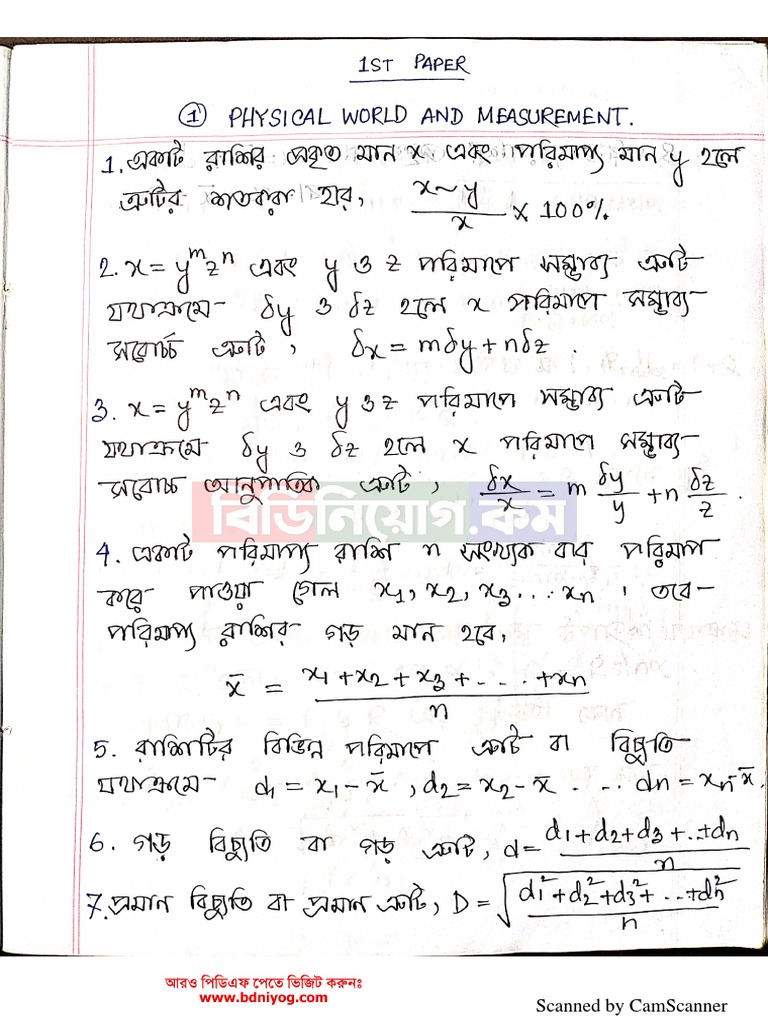 1ST PAPER
① PHYSICAL WORLD AND MEASUREMENT.
1. একটি রাশির প্রকৃত মান x এবং পরিমাপ্য মান y হলে
ত্রুটির শতকরা হার, x~y/x × 100%.
2. x = yᵐzⁿ এবং y ও z পরিমাপে সম্ভাব্য ত্রুটি
যথাক্রমে δy ও δz হলে x পরিমাপে সম্ভাব্য
সর্বোচ্চ ত্রুটি, δx = mδy + nδz.
3. x = yᵐzⁿ এবং y ও z পরিমাপে সম্ভাব্য ত্রুটি
যথাক্রমে δy ও δz হলে x পরিমাপে সম্ভাব্য
সর্বোচ্চ আনুপাতিক ত্রুটি, δx/x = m δy/y + n δz/z.
বিডিনিয়োগ.কম
4. একটি পরিমাপ্য রাশি n সংখ্যক বার পরিমাপ
করে পাওয়া গেল x₁, x₂, x₃ ... xₙ। তবে
পরিমাপ্য রাশির গড় মান হবে,
x̄ = x₁ + x₂ + x₃ + ... + xₙ/n
5. রাশিটির বিভিন্ন পরিমাপে ত্রুটি বা বিচ্যুতি
যথাক্রমে d₁ = x₁ - x̄, d₂ = x₂ - x̄ ... dn = xₙ - x̄.
6. গড় বিচ্যুতি বা গড় ত্রুটি, d = d₁ + d₂ + d₃ + ... + dn/n
7. প্রমান বিচ্যুতি বা প্রমান ত্রুটি, D = √(d₁² + d₂² + d₃² + ... + dn²/n)
আরও পিডিএফ পেতে ভিজিট করুনঃ
www.bdniyog.com
Scanned by CamScanner